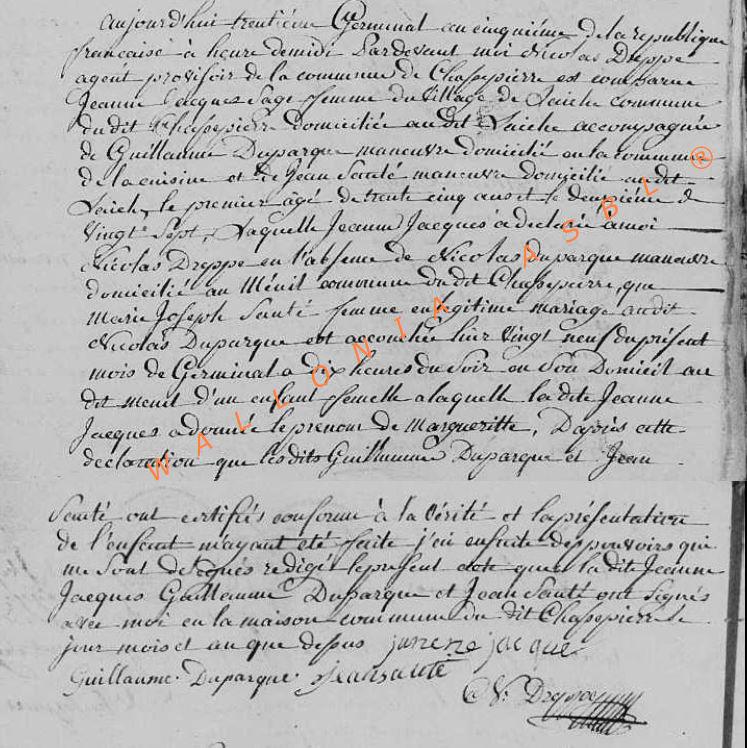 aujourd'hui trentieme Germinal an cinquiéme de la republique
francaise à heure de midi Pardevant moi Nicolas Dreppe
agent provisoir de la commune de Chassepierre est comparue
Jeanne Jacques Sage femme du Village de Laiche commune
du dit Chassepierre domiciliée au dit Laiche accompagnée
de Guillaume Duparque manœuvre domicilié en la commune
de la cuisine et de Jean Santé manœuvre Domicilié au dit
Laich, le premier âgé de trente cinq ans et le deuxiéme de
Vingt Sept, Laquelle Jeanne Jacques a déclaré à moi
Nicolas Dreppe en l'absence de Nicolas Duparque manœuvre
domicilié au Ménil commune du dit Chassepierre, que
Marie Joseph Santé femme en légitime mariage audit
Nicolas Duparque est accouchée hier Vingt neuf du présent
mois de Germinal a Dix heures du Soir en Son Domicil au
dit menil d'un enfant femelle a laquelle la dite Jeanne
Jacques a donnée le prenom de Margueritte, D'après cette
declaration que les dits Guillaume Duparque et Jean
Santé ont certifiés conforme à la Vérité et la présentation
de l'enfant m'ayant été faite j'ai ensuite des pouvoirs qui
me sont delegués redigé le present acte que la dit Jeanne
Jacques Guillaume Duparque et Jean Santé ont Signés
avec moi en la maison commune du dit Chassepierre le
jour mois et an que dessus jacque
Guillaume Duparque Jean santé
N. Dreppe
WALLONIA ASBL ®